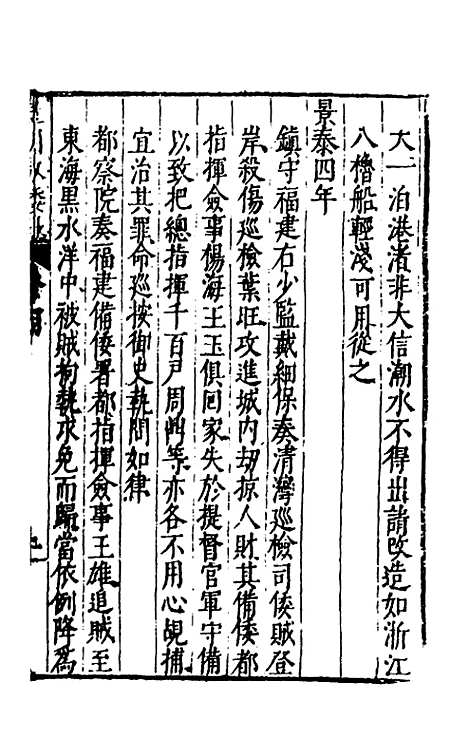 大一泊港渚非大信潮水不得出請改造如浙江
八櫓船輕淺可用從之
景泰四年
鎮守福建右少監戴細保奏清灣巡檢司倭賊登
岸殺傷巡檢葉旺攻進城內刼掠人財其備倭都
指揮僉事楊海王玉俱回家失於提督官軍守備
以致把總指揮千百戶周等亦各不用心覘捕
宜治其罪命巡按御史執問如律
都察院奏福建備倭署都指揮僉事王雄追賊至
東海黑水洋中被賊拘執求免而歸當依例降爲